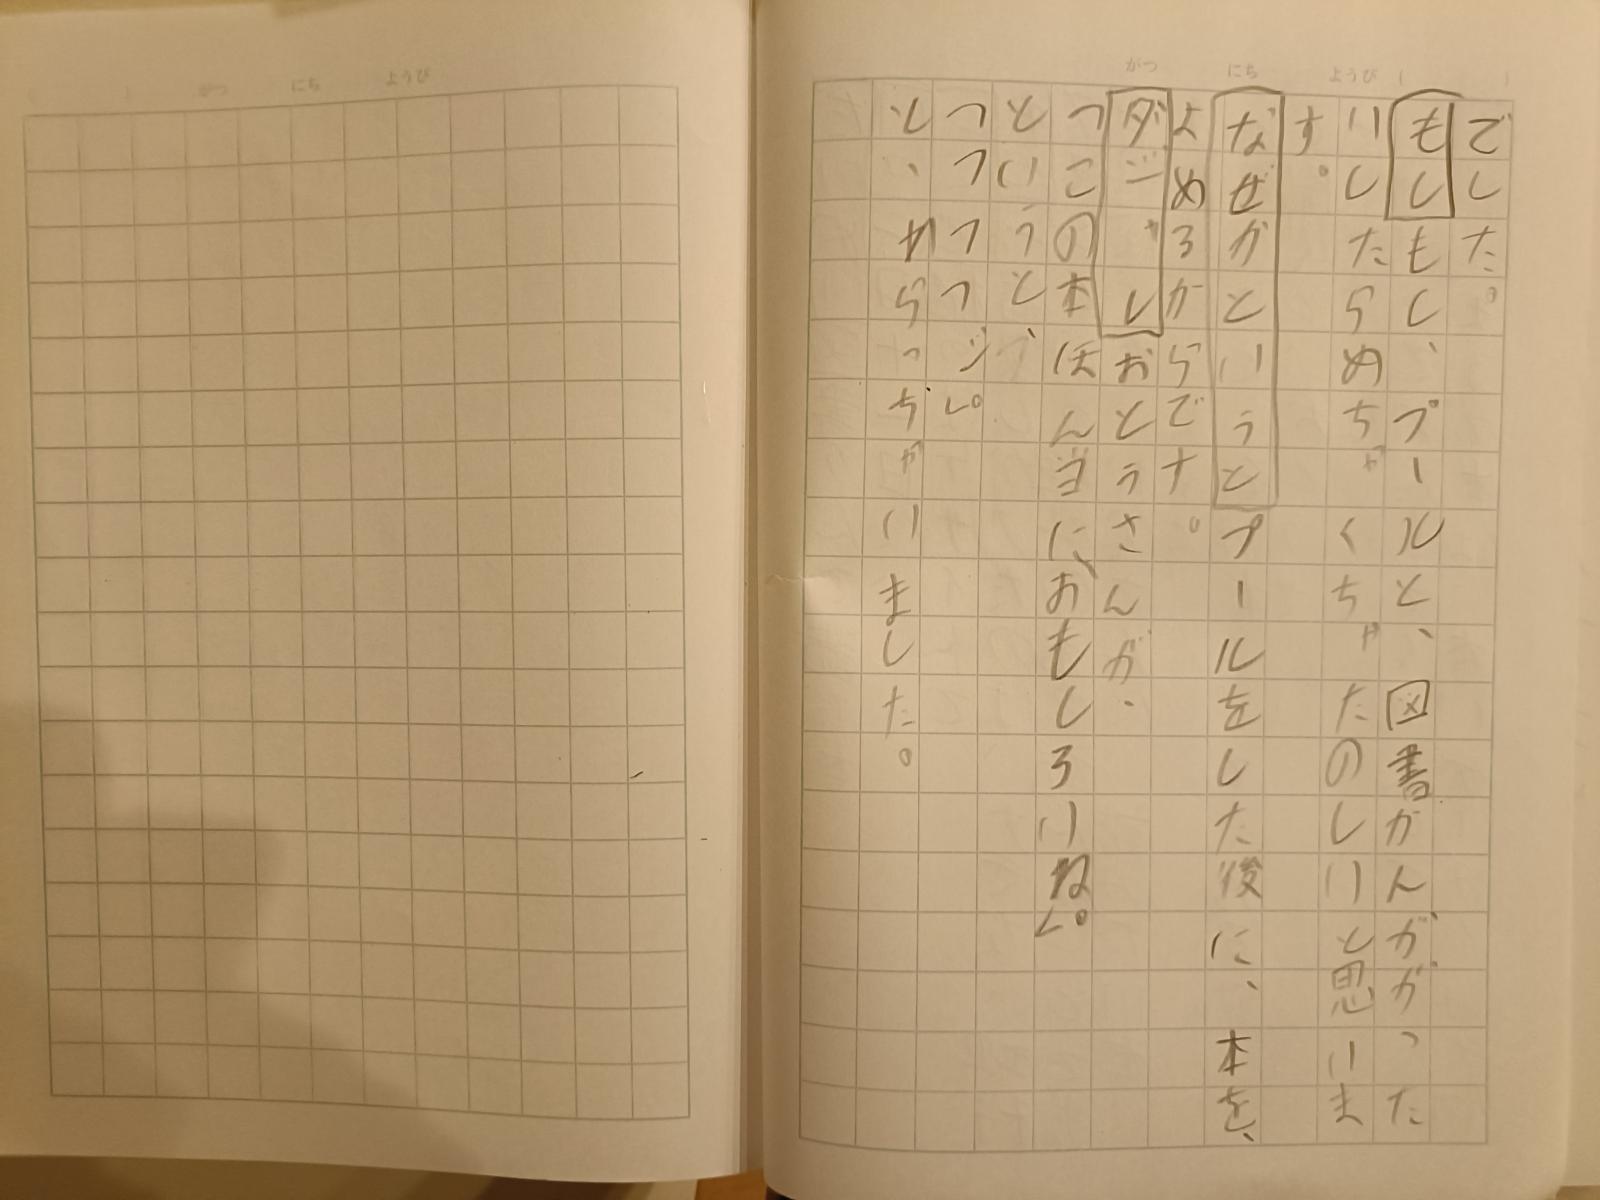 がつ にち ようび ( )
でした。
もしもし、プールと、図書かんががった
いしたらめちゃくちゃたのしいと思いま
す。
なぜかというとプールをした後に、本を、
よめるからです。
ダジャレおとうさんが、
「この本ほん当に、おもしろいね。」
というと
と、わらっちゃいました。
( ) がつ にち ようび